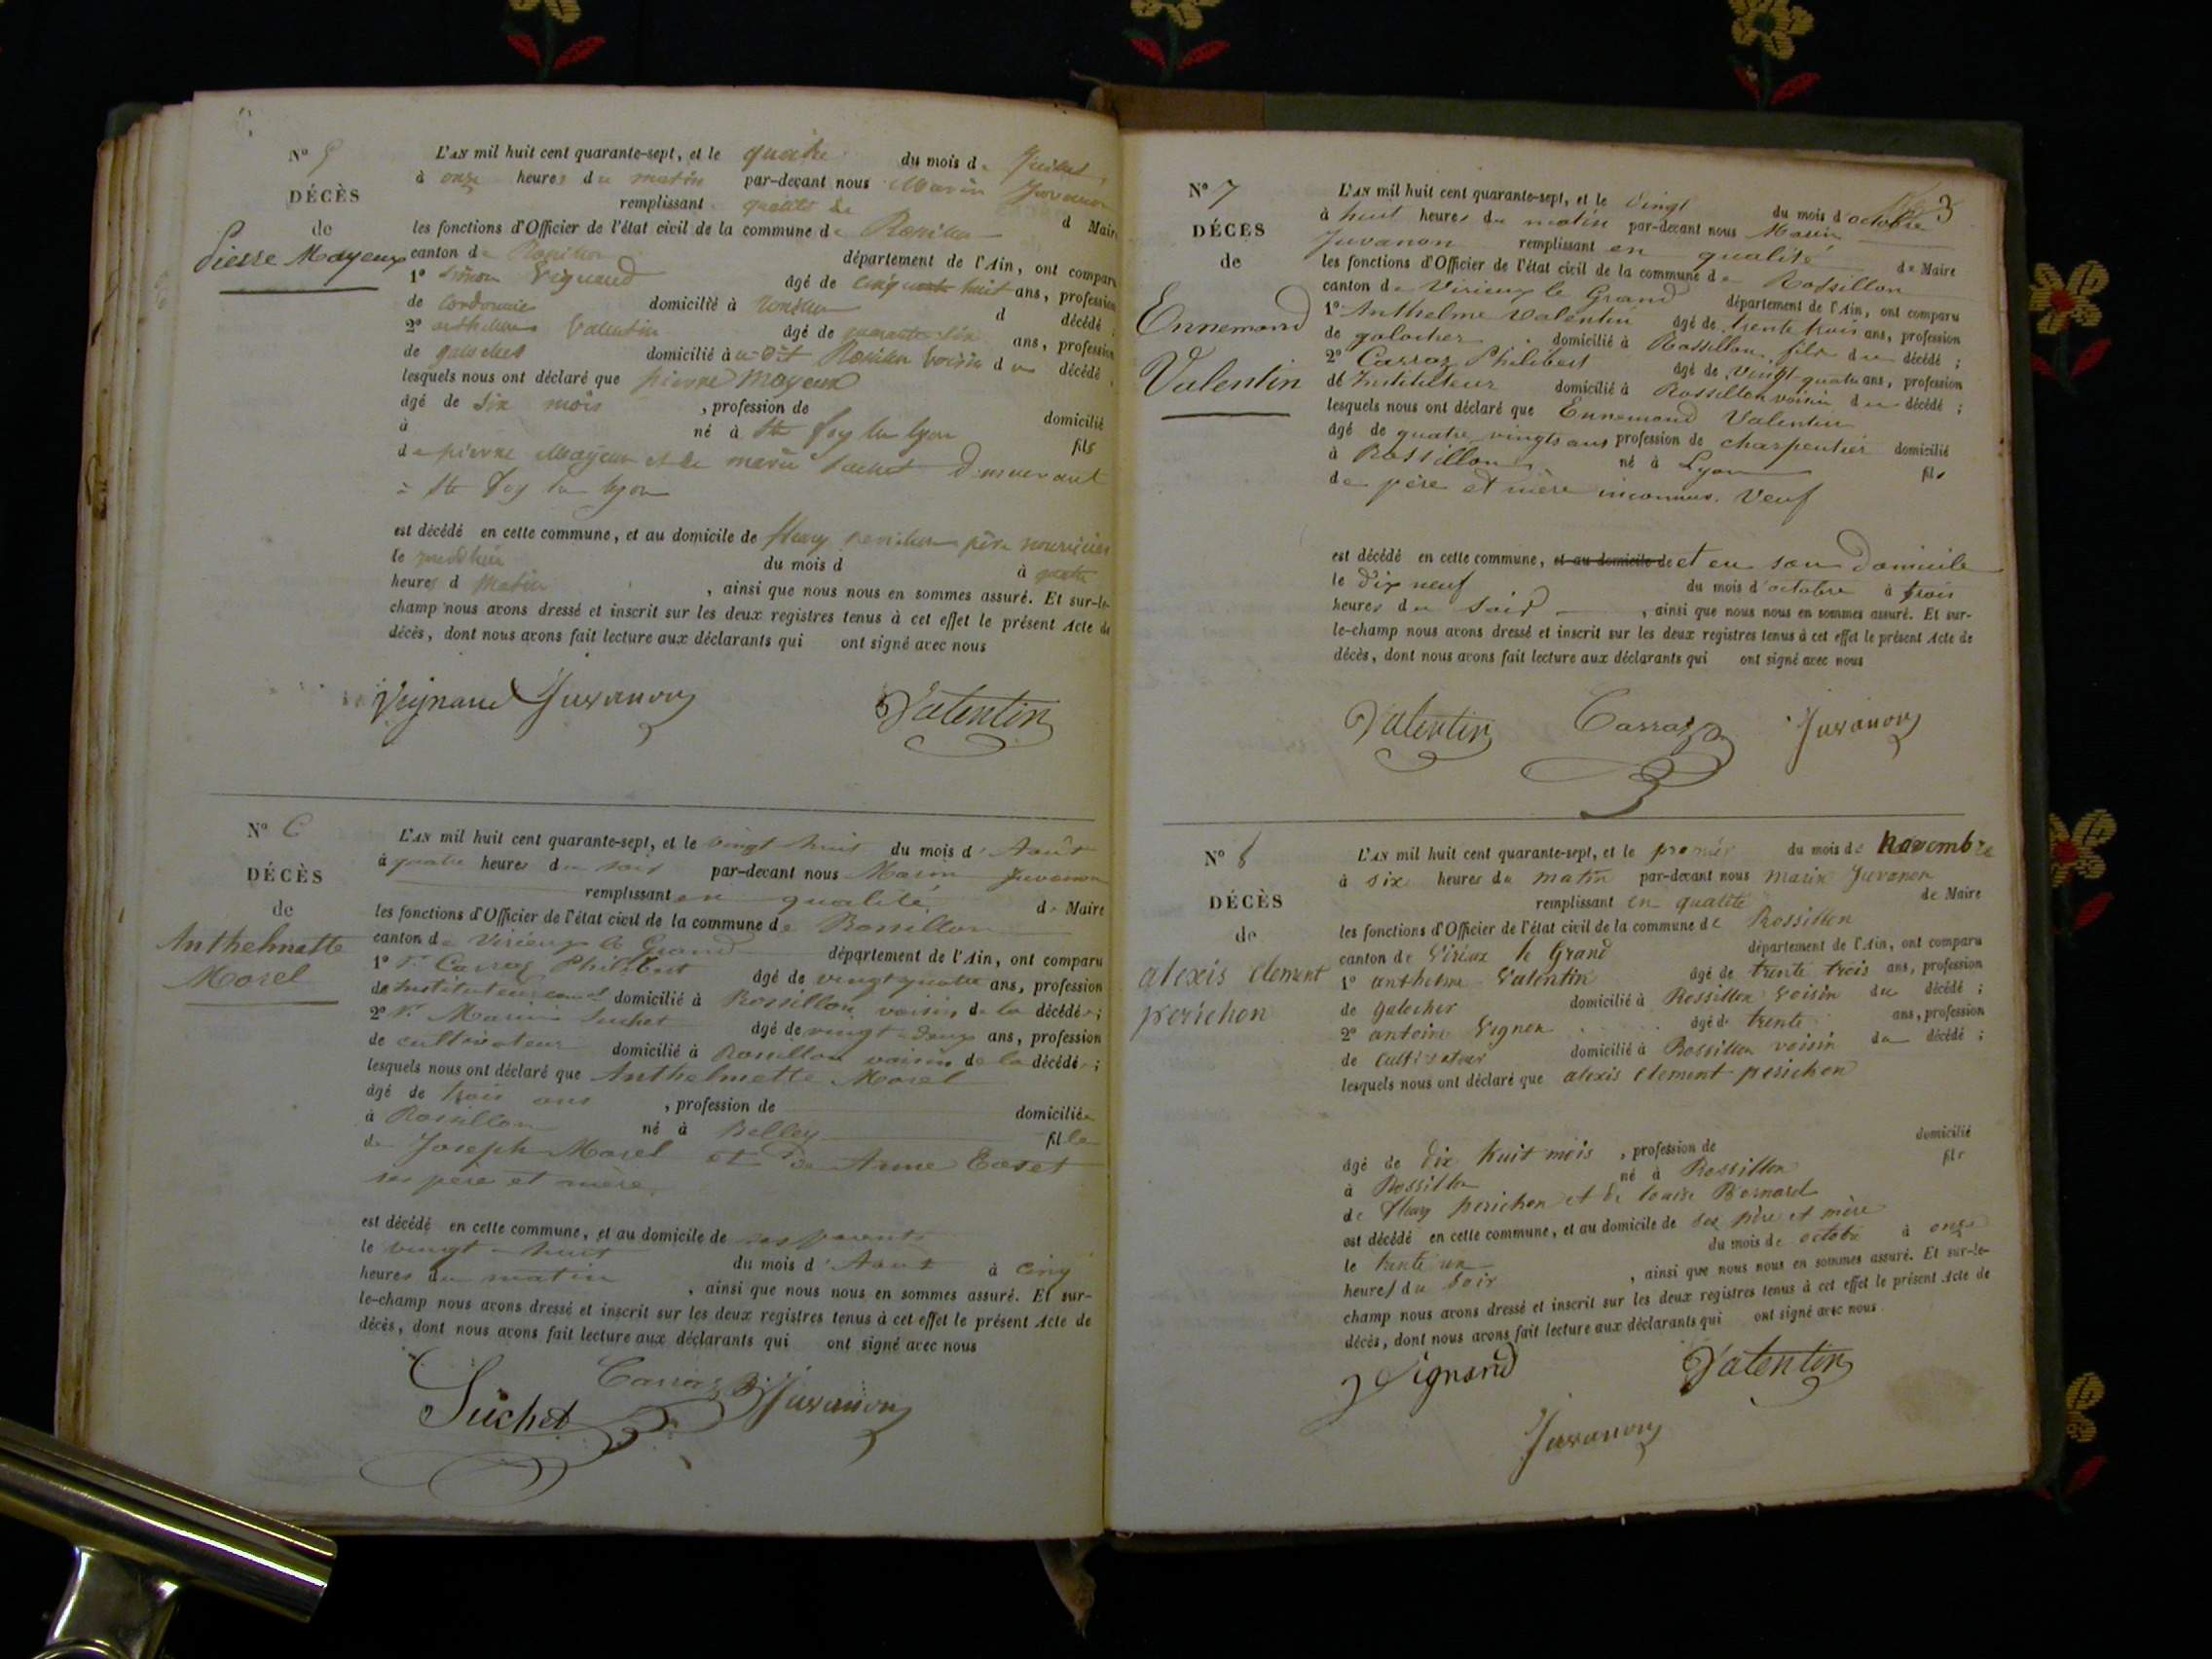 N° 5
DÉCÈS
de
Pierre Mayeux
L'AN mil huit cent quarante-sept, et le quatre du mois de Juillet
à onze heures du matin par-devant nous Marin Juvanon
remplissant qualité de d Maire
les fonctions d'Officier de l'état civil de la commune de Rossillon
canton de Rossillon département de l'Ain, ont comparu
1° Simon Vignaud âgé de cinquante huit ans, profession
de cordonnier domicilié à d décédé ;
2° anthelme Valentin âgé de quarante six ans, profession
de galocher domicilié à u-dit Rossillon voisin du décédé ;
lesquels nous ont déclaré que pierre Mayeux
âgé de six mois , profession de domicilié
à né à Ste foy les lyon fils
de pierre Mayeux et de marie suchet demeurant
à Ste foy les lyon
est décédé en cette commune, et au domicile de fleury perichon père nourricier
le du mois d à quatre
heures d Matin , ainsi que nous nous en sommes assuré. Et sur-le-
champ nous avons dressé et inscrit sur les deux registres tenus à cet effet le présent Acte de
décès, dont nous avons fait lecture aux déclarants qui ont signé avec nous
Vignaud Juvanon Valentin
N° 6
DÉCÈS
de
Anthelmette
Morel
L'AN mil huit cent quarante-sept, et le vingt huit du mois d'Août
à quatre heures du soir par-devant nous Marin Juvanon
remplissant en qualité de Maire
les fonctions d'Officier de l'état civil de la commune de Rossillon
canton de Virieux le Grand département de l'Ain, ont comparu
1° Sr Carraz Philibert âgé de vingt quatre ans, profession
de Instituteur comal domicilié à Rossillon voisin de la décédée ;
2° Sr Marin Suchet âgé de vingt-deux ans, profession
de cultivateur domicilié à Rossillon voisin de la décédée ;
lesquels nous ont déclaré que Anthelmette Morel
âgé de trois ans , profession de domiciliée
à Rossillon né à Belley fille
de Joseph Morel et de Anne
ses père et mère
est décédé en cette commune, et au domicile de ses parents
le vingt-huit du mois d'Aout à cinq
heures du matin , ainsi que nous nous en sommes assuré. Et sur-
le-champ nous avons dressé et inscrit sur les deux registres tenus à cet effet le présent Acte de
décès, dont nous avons fait lecture aux déclarants qui ont signé avec nous
Suchet Carraz Juvanon
3
N° 7
DÉCÈS
de
Ennemond
Valentin
L'AN mil huit cent quarante-sept, et le vingt du mois d'octobre
à huit heures du matin par-devant nous Marin
Juvanon remplissant en qualité de Maire
les fonctions d'Officier de l'état civil de la commune de Rossillon
canton de Virieux le Grand département de l'Ain, ont comparu
1° Anthelme Valentin âgé de trente trois ans, profession
de galocher domicilié à Rossillon, fils du décédé ;
2° Carraz Philibert âgé de vingt quatre ans, profession
de Instituteur domicilié à Rossillon voisin du décédé ;
lesquels nous ont déclaré que Ennemond Valentin
âgé de quatre vingts ans profession de charpentier domicilié
à Rossillon né à Lyon fils
de père et mère inconnus. Veuf
est décédé en cette commune, et au domicile de et en son Domicile
le Dix neuf du mois d'octobre à trois
heures du soir , ainsi que nous nous en sommes assuré. Et sur-
le-champ nous avons dressé et inscrit sur les deux registres tenus à cet effet le présent Acte de
décès, dont nous avons fait lecture aux déclarants qui ont signé avec nous
Valentin Carraz Juvanon
N° 8
DÉCÈS
de
alexis clement
perichon
L'AN mil huit cent quarante-sept, et le premier du mois de Novembre
à six heures du matin par-devant nous marin Juvanon
remplissant en qualité de Maire
les fonctions d'Officier de l'état civil de la commune de Rossillon
canton de Virieux le Grand département de l'Ain, ont comparu
1° anthelme Valentin âgé de trente trois ans, profession
de galocher domicilié à Rossillon voisin du décédé ;
2° antoine Vignon âgé de trente ans, profession
de cultivateur domicilié à Rossillon voisin du décédé ;
lesquels nous ont déclaré que alexis clement perichon
âgé de dix huit mois , profession de domicilié
à Rossillon né à Rossillon fils
de fleury perichon et de louise Bernard
est décédé en cette commune, et au domicile de ses père et mère
le trente un du mois de octobre à onze
heures du soir , ainsi que nous nous en sommes assuré. Et sur-le-
champ nous avons dressé et inscrit sur les deux registres tenus à cet effet le présent Acte de
décès, dont nous avons fait lecture aux déclarants qui ont signé avec nous
Vignand Valentin
Juvanon